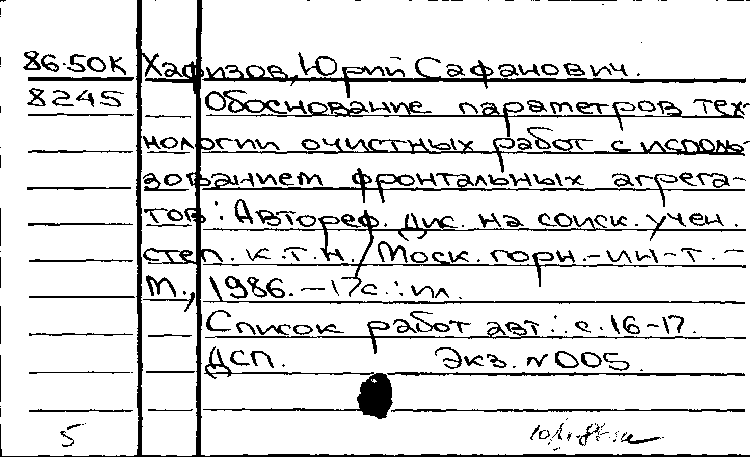 86-50К Хафизов, Юрий Сафанович.
8245 Обоснование параметров тех-
нологии очистных работ с исполь-
зованием фронтальных агрега-
тов: Автореф. дис. на соиск. учен.
степ. к.т.н. / Моск. горн. ин-т. -
М., 1986. - 17с.: ил.
Список работ авт.: с. 16-17.
ДСП. Экз. N 005.
5